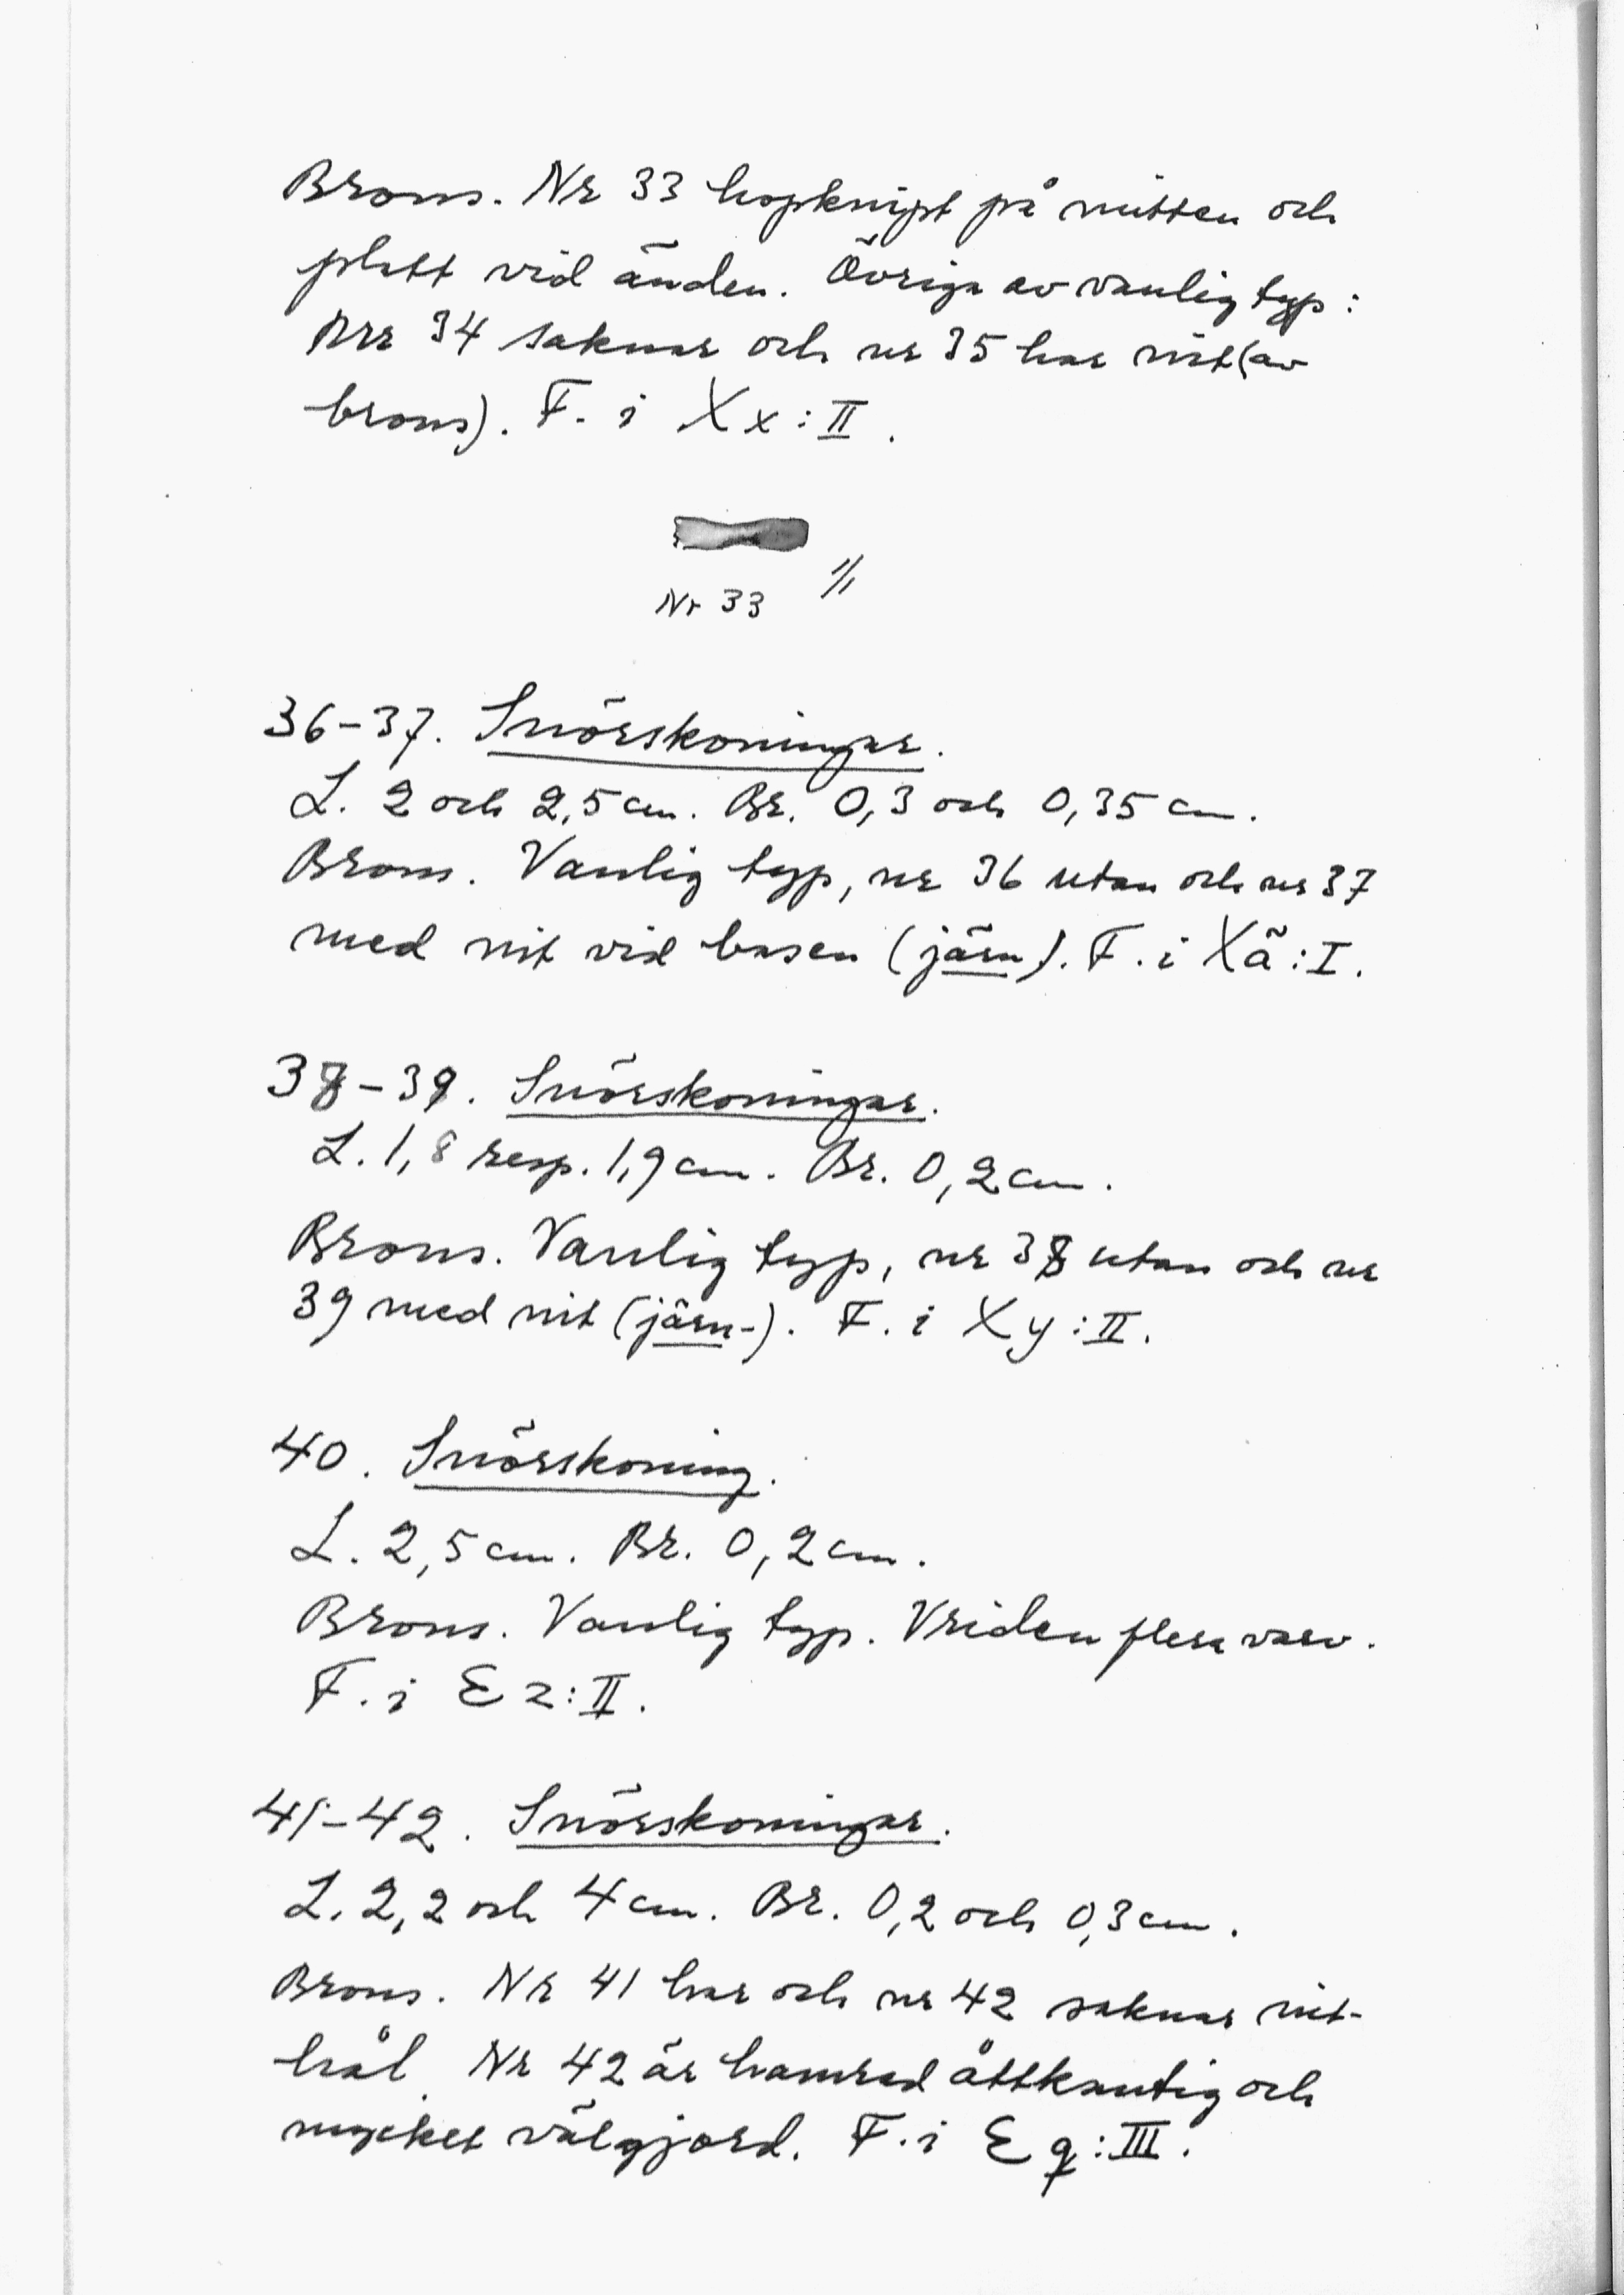 Brons. Nr 33 hopknipt på mitten och
platt vid änden. Övriga av vanlig typ:
Nr 34 saknar och nr 35 har nit (av
brons). F. i Xx:II.
Nr 33 1/1
36-37. Snörskoningar.
L. 2 och 2,5 cm. Br. 0,3 och 0,35 cm.
Brons. Vanlig typ, nr 36 utan och nr 37
med nit vid basen (järn). F. i Xä:I.
38-39. Snörskoningar.
L. 1,8 resp. 1,9 cm. Br. 0,2 cm.
Brons. Vanlig typ, nr 38 utan och nr
39 med nit (järn-). F. i Xy:II.
40. Snörskoning.
L. 2,5 cm. Br. 0,2 cm.
Brons. Vanlig typ. Vriden flera varv.
F. i Ez:II.
41-42. Snörskoningar.
L. 2,2 och 4 cm. Br. 0,2 och 0,3 cm.
Brons. Nr 41 har och nr 42 saknar nit-
hål. Nr 42 är hamrad åttkantig och
mycket välgjord. F. i Eq:III.